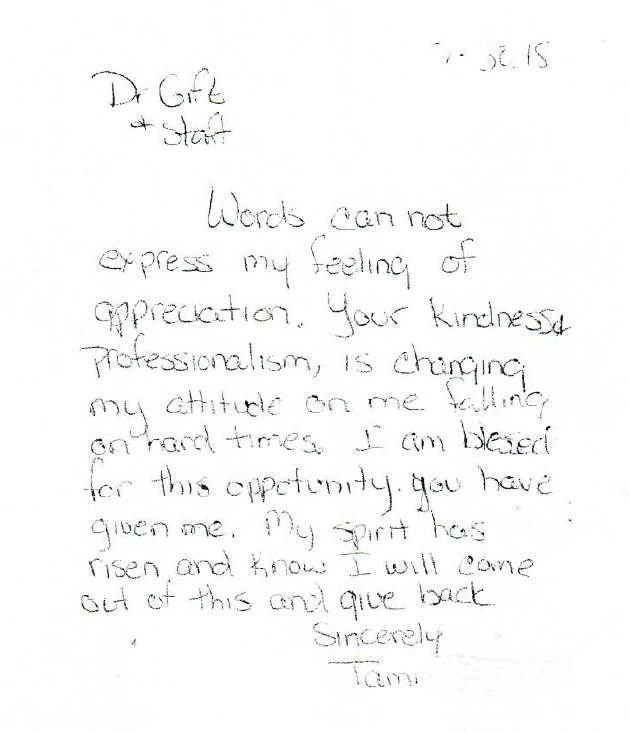 Dr Gift
+ Staff
Words can not
express my feeling of
appreciation. Your kindness &
professionalism, is changing
my attitude on me falling
on hard times. I am blessed
for this oppotunity. you have
given me. My spirit has
risen and know I will come
out of this and give back
Sincerely
Tami